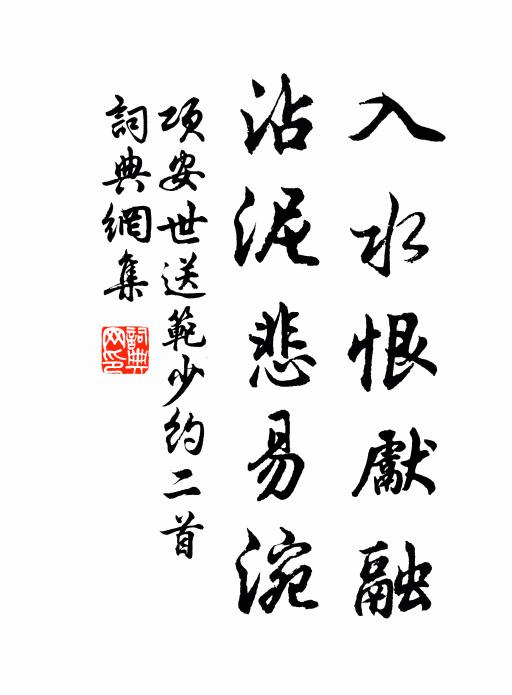 入水恨獻融
沾泥悲易涴
項安世送範少約二首
詞典網集
詞典网印